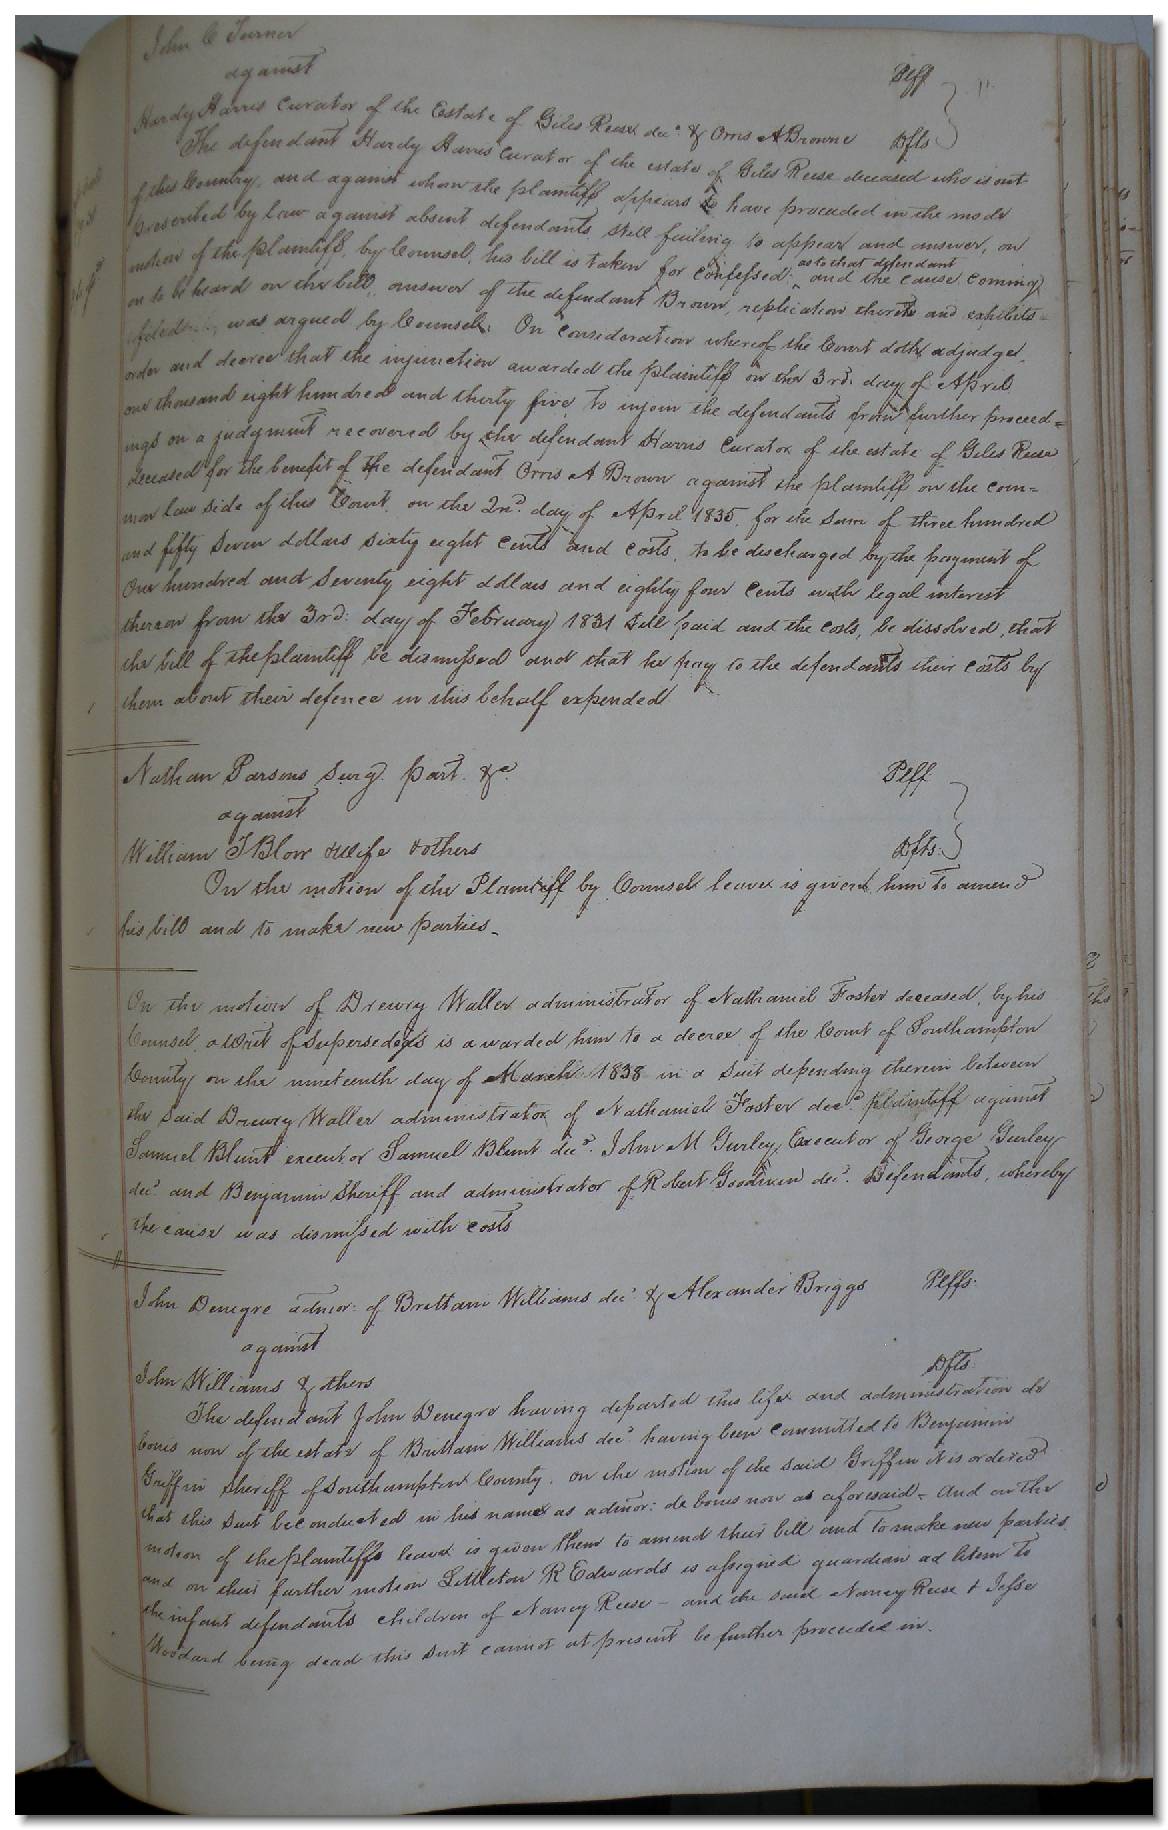 John C Turner Plff
against
Hardy Harris Curator of the Estate of Giles Reese decd. & Orris A Browne Dfts
The defendant Hardy Harris Curator of the estate of Giles Reese deceased who is out
of this Country, and against whom the plaintiff appears to have proceeded in the mode
prescribed by law against absent defendants still failing to appear and answer, on
motion of the plaintiff, by Counsel, his bill is taken for confessed; as to that defendant and the cause coming
on to be heard on the bill, answer of the defendant Brown, replication thereto and exhibits
filed was argued by Counsel. On consideration whereof the Court doth adjudge,
order and decree that the injunction awarded the plaintiff on the 3rd. day of April
one thousand eight hundred and thirty five, to injoin the defendants from further proceed=
ings on a judgment recovered by the defendant Harris Curator of the estate of Giles Reese
deceased for the benefit of the defendant Orris A Brown against the plaintiff on the com=
mon law side of this Court, on the 2nd. day of April 1835, for the sum of three hundred
and fifty seven dollars sixty eight cents and costs, to be discharged by the payment of
One hundred and seventy eight dollars and eighty four cents with legal interest
thereon from the 3rd: day of February 1831 till paid and the costs, be dissolved, that
the bill of the plaintiff be dismissed and that he pay to the defendants their costs by
them about their defence in this behalf expended
Nathan Parsons Surg. part. &c. Plff
against
William T Blow & wife & others Dfts.
On the motion of the Plaintiff by Counsel leave is given him to amend
his bill and to make new parties.
On the motion of Drewry Waller administrator of Nathaniel Foster deceased, by his
Counsel, a Writ of Supersedeas is awarded him to a decree of the Court of Southampton
County on the nineteenth day of March 1838 in a suit depending therein between
the said Drewry Waller administrator of Nathaniel Foster decd. plaintiff against
Samuel Blunt executor Samuel Blunt decd. John M Gurley, Executor of George Gurley
decd. and Benjamin Sheriff and administrator of Robert Goodwin decd. Defendants, whereby
the cause was dismissed with costs
John Denegre admor: of Brittain Williams decd. & Alexander Briggs Plffs.
against
John Williams & others Dfts.
The defendant John Denegre having departed this life and administration de
bonis non of the estate of Brittain Williams decd. having been committed to Benjamin
Griffin Sheriff of Southampton County. on the motion of the said Griffin it is ordered
that this suit be conducted in his name as admor: de bonis non as aforesaid - And on the
motion of the plaintiffs leave is given them to amend their bill and to make new parties
and on their further motion Littleton R Edwards is assigned guardian ad litem to
the infant defendants children of Nancy Reese - and the said Nancy Reese & Jesse
Woodard being dead this suit cannot at present be further proceeded in.